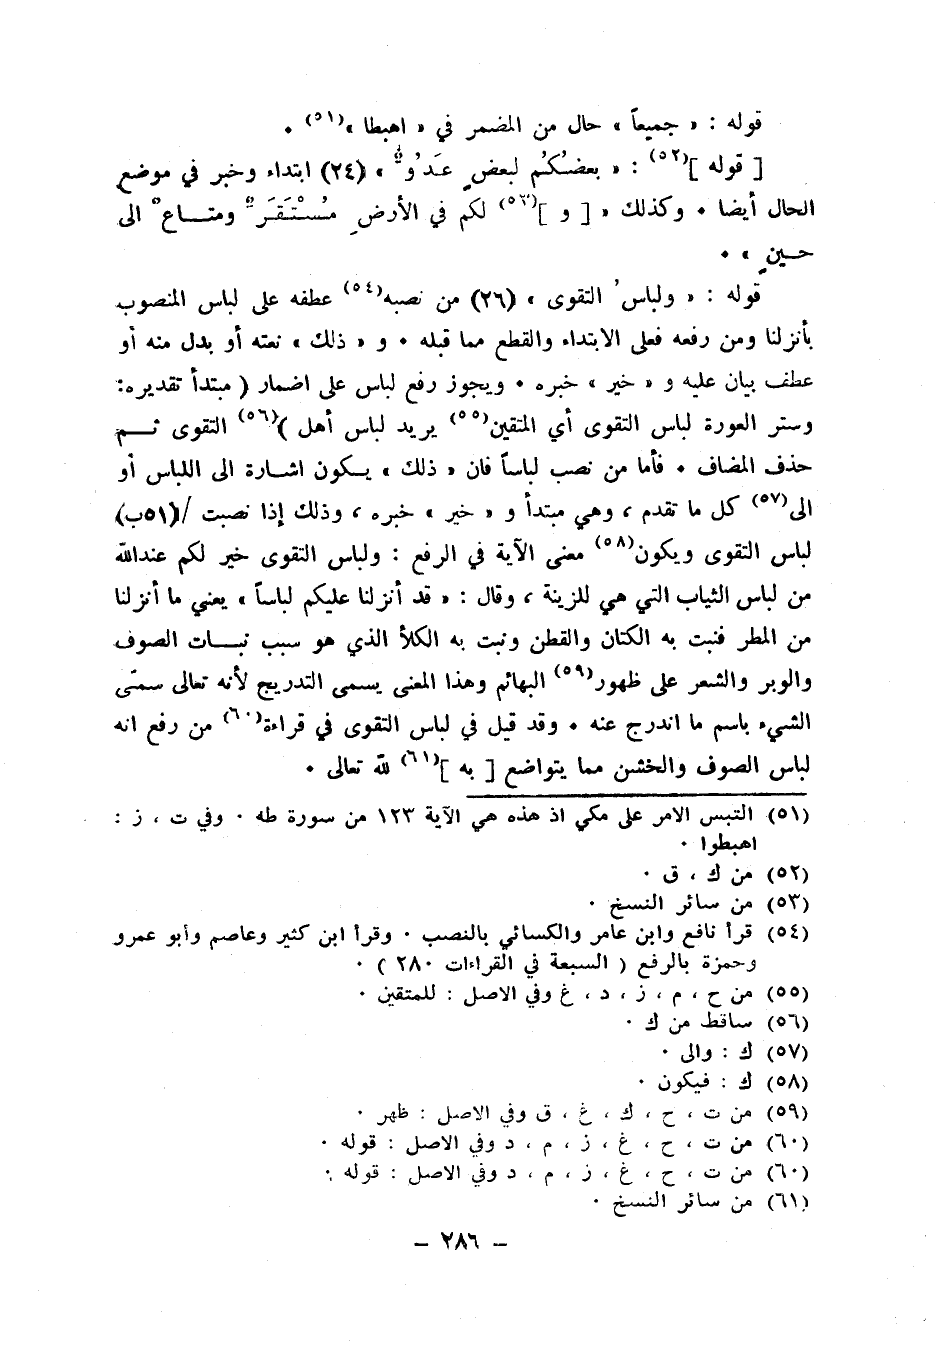 قوله : « جميعاً » حال من المضمر في « اهبطا »(٥١) ٠
[ قوله ](٥٢) : « بعضُكُم لبعضٍ عَدُوٌّ » (٢٤) ابتداء وخبر في موضع
الحال أيضا ٠ وكذلك « [ و ](٥٣) لكم في الأرضِ مُسْتَقَرٌّ ومتـاعٌ الى
حـينٍ » ٠
قوله : « ولباسُ التقوى » (٢٦) من نصبه(٥٤) عطفه على لباس المنصوب
بأنزلنا ومن رفعه فعلى الابتداء والقطع مما قبله ٠ و « ذلك » نعته أو بدل منه أو
عطف بيان عليه و « خير » خبره ٠ ويجوز رفع لباس على اضمار ( مبتدأ تقديره:
وستر العورة لباس التقوى أي المتقين(٥٥) يريد لباس أهل )(٥٦) التقوى ثـم
حذف المضاف ٠ فأما من نصب لباساً فان « ذلك » يـكون اشـارة الى اللباس أو
الى(٥٧) كل ما تقدم ، وهي مبتدأ و « خير » خبره ، وذلك إذا نصبت /(٥١ب)
لباس التقوى ويكون(٥٨) معنى الآية في الرفع : ولباس التقوى خير لكم عندالله
من لباس الثياب التي هي للزينة ، وقال : « قد أنزلنا عليكم لباساً » يعني ما أنزلنا
من المطر فنبت به الكتان والقطن ونبت به الكلأ الذي هو سبب نبـات الصوف
والوبر والشعر على ظهور(٥٩) البهائم وهذا المعنى يسمى التدريج لأنه تعالى سمّى
الشيء باسم ما اندرج عنه ٠ وقد قيل في لباس التقوى في قراءة(٦٠) من رفع انه
لباس الصوف والخشن مما يتواضع [ به ](٦١) لله تعالى ٠
(٥١) التبس الامر على مكي اذ هذه هي الآية ١٢٣ من سورة طه ٠ وفي ت ، ز :
اهبطوا ٠
(٥٢) من ك ، ق ٠
(٥٣) من سائر النسخ ٠
(٥٤) قرأ نافع وابن عامر والكسائي بالنصب ٠ وقرأ ابن كثير وعاصم وأبو عمرو
وحمزة بالرفع ( السبعة في القراءات ٢٨٠ ) ٠
(٥٥) من ح ، م ، ز ، د ، غ وفي الاصل : للمتقين ٠
(٥٦) ساقط من ك ٠
(٥٧) ك : والى ٠
(٥٨) ك : فيكون ٠
(٥٩) من ت ، ح ، ك ، غ ، ق وفي الاصل : ظهر ٠
(٦٠) من ت ، ح ، غ ، ز ، م ، د وفي الاصل : قوله ٠
(٦٠) من ت ، ح ، غ ، ز ، م ، د وفي الاصل : قوله ٠
(٦١) من سائر النسخ ٠
– ٢٨٦ –